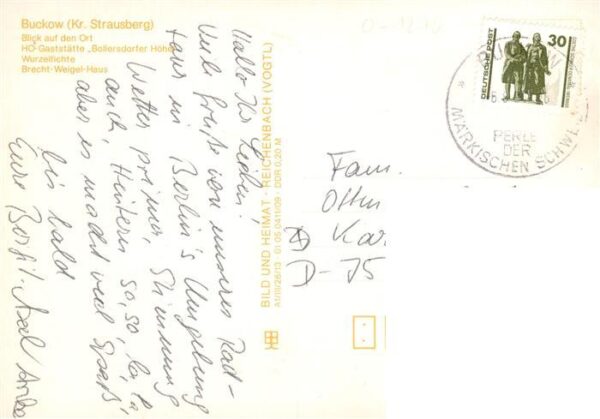 Buckow (Kr. Strausberg)
Blick auf den Ort
HO-Gaststätte „Bollersdorfer Höhe"
Wurzelfichte
Brecht-Weigel-Haus
Hallo Ihr Lieben!
Viele Grüße von unserer Rad-
tour in Berlin's Umgebung
Wetter prima, Stimmung
auch, Hintern so, so, la, la,
aber es macht viel Spaß
bis bald
Eure Birgit, Axel
BILD UND HEIMAT · REICHENBACH (VOGTL)
A1/III/26/13 · 01 05 0411/09 · DDR 0,20 M
DEUTSCHE POST
30
PERLE
DER
MÄRKISCHEN SCHWEIZ
Fam.
Ottm
Kar
D-75